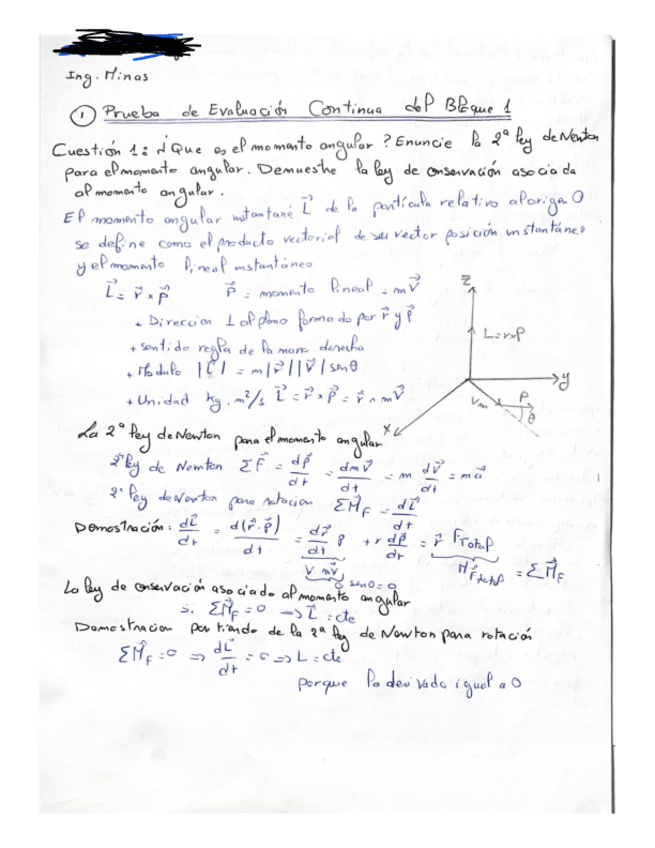 Ing. Minas
① Prueba de Evaluación Continua del Bloque 1
Cuestión 1: ¿Que es el momento angular? Enuncie la 2ª ley de Newton
para el momento angular. Demuestre la ley de conservación asociada
al momento angular.
El momento angular instantané L⃗ de la partícula relativo al origen O
se define como el producto vectorial de su vector posición instantáneo
y el momento lineal instantáneo
L⃗ = r⃗ × p⃗ p⃗ = momento lineal = mV⃗
+ Direccion ⊥ al plano formado por r⃗ y p⃗
+ sentido regla de la mano derecha
+ Modulo |L⃗| = m|r⃗||V⃗| senθ
+ Unidad kg.m²/s L⃗ = r⃗ × p⃗ = r⃗ × mV⃗
z
L=r×P
y
x
Vm
P
θ
La 2ª ley de Newton para el momento angular
2ª ley de Newton ΣF⃗ = dp⃗/dt = dmV⃗/dt = m dV⃗/dt = ma⃗
2ª ley de Newton para rotacion ΣM⃗F = dL⃗/dt
Demostración: dL⃗/dt = d(r⃗·p⃗)/dt = dr⃗/dt p + r dp⃗/dt = r⃗ FTotal
V mV⃗ senθ=0 M⃗Ftotal = ΣM⃗F
La ley de conservación asociado al momento angular
si ΣM⃗F = 0 → L⃗ = cte
Demostracion partiendo de la 2ª ley de Newton para rotación
ΣM⃗F = 0 ⇒ dL⃗/dt = 0 ⇒ L = cte
porque la derivada igual a 0